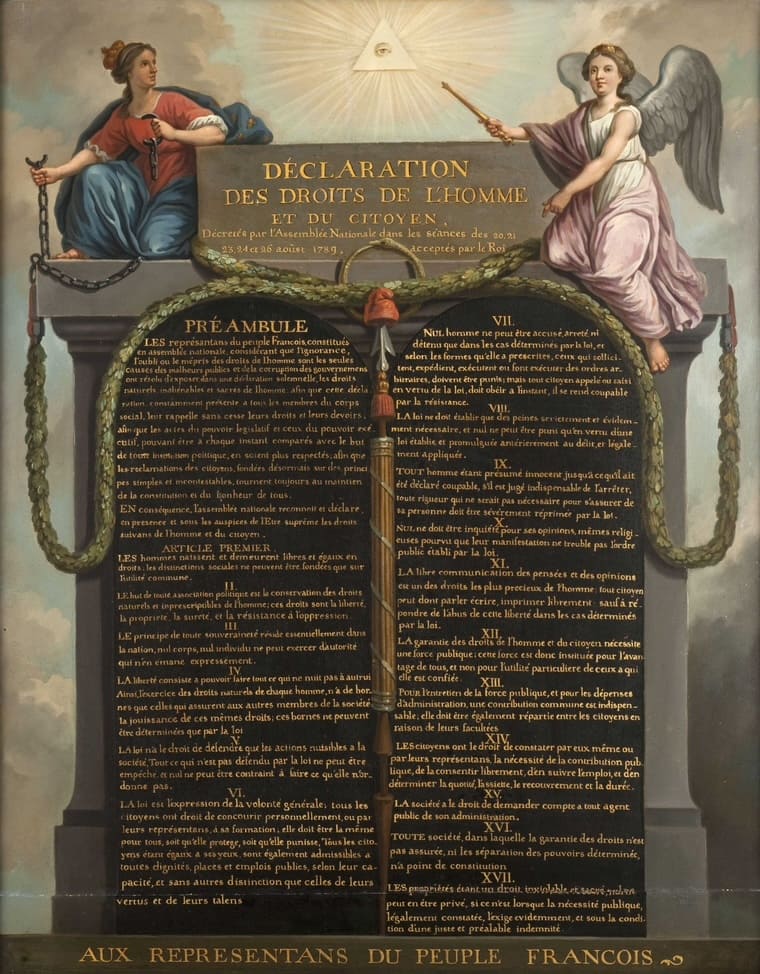 DÉCLARATION
DES DROITS DE L'HOMME
ET DU CITOYEN,
Décretés par l'Assemblée Nationale dans les séances des 20. 21
23. 24 et 26 aoûst 1789, acceptés par le Roi
PRÉAMBULE
LES représentans du peuple François, constitués
en assemblée nationale, considérant que l'ignorance,
l'oubli ou le mépris des droits de l'homme sont les seules
causes des malheurs publics et de la corruption des gouvernemens
ont résolu d'exposer dans une déclaration solemnelle, les droits
naturels inaliénables et sacrés de l'homme; afin que cette décla
ration, constamment présente a tous les membres du corps
social, leur rappelle sans cesse leurs droits et leurs devoirs,
afin que les actes du pouvoir legislatif et ceux du pouvoir exé
cutif, pouvant être a chaque instant comparés avec le but
de toute institution politique, en soient plus respectés; afin que
les reclamations des citoyens, fondées désormais sur des princi
pes simples et incontestables, tournent toujours au maintien
de la constitution et du bonheur de tous.
EN conséquence, l'assemblée nationale reconnoit et déclare
en presence et sous les auspices de l'Etre suprême les droits
suivans de l'homme et du citoyen.
ARTICLE PREMIER.
LES hommes naissent et demeurent libres et égaux en
droits; les distinctions sociales ne peuvent être fondées que sur
l'utilité commune.
II.
LE but de toute association politique est la conservation des droits
naturels et inprescriptibles de l'homme; ces droits sont la liberté,
la propriété, la sureté, et la résistance à l'oppression.
III
LE principe de toute souveraineté réside essentiellement dans
la nation, nul corps, nul individu ne peut exercer d'autorité
qui n'en emane expressément.
IV
LA liberté consiste a pouvoir faire tout ce qui ne nuit pas à autrui
Ainsi, l'exercice des droits naturels de chaque homme, n'a de bor-
nes que celles qui assurent aux autres membres de la société
la jouissance de ces mêmes droits; ces bornes ne peuvent
être déterminées que par la loi
V.
LA loi n'a le droit de défendre que les actions nuisibles a la
société, Tout ce qui n'est pas défendu par la loi ne peut être
empêché, et nul ne peut être contraint à faire ce qu'elle n'or-
donne pas.
VI.
LA loi est l'expression de la volonté générale; tous les
citoyens ont droit de concourir personnellement, ou par
leurs représentans, à sa formation; elle doit être la même
pour tous, soit qu'elle protege, soit qu'elle punisse, Tous les cito
yens étant égaux à ses yeux, sont également admissibles a
toutes dignités, places et emplois publics, selon leur ca-
pacité, et sans autres distinction que celles de leurs
vertus et de leurs talens
VII.
NUL homme ne peut être accusé, arreté, ni
détenu que dans les cas déterminés par la loi, et
selon les formes qu'elle a prescrites, ceux qui sollici-
tent, expédient, exécutent ou font exécuter des ordres ar-
bitraires, doivent être punis; mais tout citoyen appelé ou saisi
en vertu de la loi, doit obéir a l'instant, il se rend coupable
par la résistance.
VIII.
LA loi ne doit établir que des peines strictement et évidem-
ment nécessaire, et nul ne peut être puni qu'en vertu d'une
loi établie et promulguée antérierement au délit, et légale-
ment appliquée.
IX.
TOUT homme étant présumé innocent jusqu'a ce qu'il ait
été déclaré coupable, s'il est jugé indispensable de l'arrêter,
toute rigueur qui ne serait pas nécessaire pour s'assurer de
sa personne doit être sévérement réprimée par la loi.
X.
NUL ne doit être inquiété pour ses opinions, mêmes religi-
euses pourvu que leur manifestation ne trouble pas l'ordre
public établi par la loi.
XI.
LA libre communication des pensées et des opinions
est un des droits les plus precieux de l'homme; tout citoyen
peut donc parler écrire, imprimer librement sauf à ré-
pondre de l'abus de cette liberté dans les cas déterminés
par la loi.
XII.
LA garantie des droits de l'homme et du citoyen nécessite
une force publique; cette force est donc instituée pour l'avan-
tage de tous, et non pour l'utilité particuliere de ceux a qui
elle est confiée.
XIII.
POUR l'entretien de la force publique, et pour les dépenses
d'administration, une contribution commune est indispen-
sable; elle doit être également répartie entre les citoyens en
raison de leurs facultées
XIV.
LES citoyens ont le droit de constater par eux même ou
par leurs représentans, la nécessité de la contribution pub-
lique, de la consentir librement, d'en suivre l'emploi, et d'en
déterminer la quotité, l'assiette, le recouvrement et la durée.
XV.
LA société a le droit de demander compte a tout agent
public de son administration.
XVI.
TOUTE société, dans laquelle la garantie des droits n'est
pas assurée, ni les séparation des pouvoirs déterminée,
n'a point de constitution
XVII.
LES propriétés étant un droit inviolable et sacré, nul ne
peut en être privé, si ce n'est lorsque la nécessité publique,
légalement constatée, l'exige evidemment, et sous la condi-
tion d'une juste et préalable indemnité.
AUX REPRESENTANS DU PEUPLE FRANCOIS